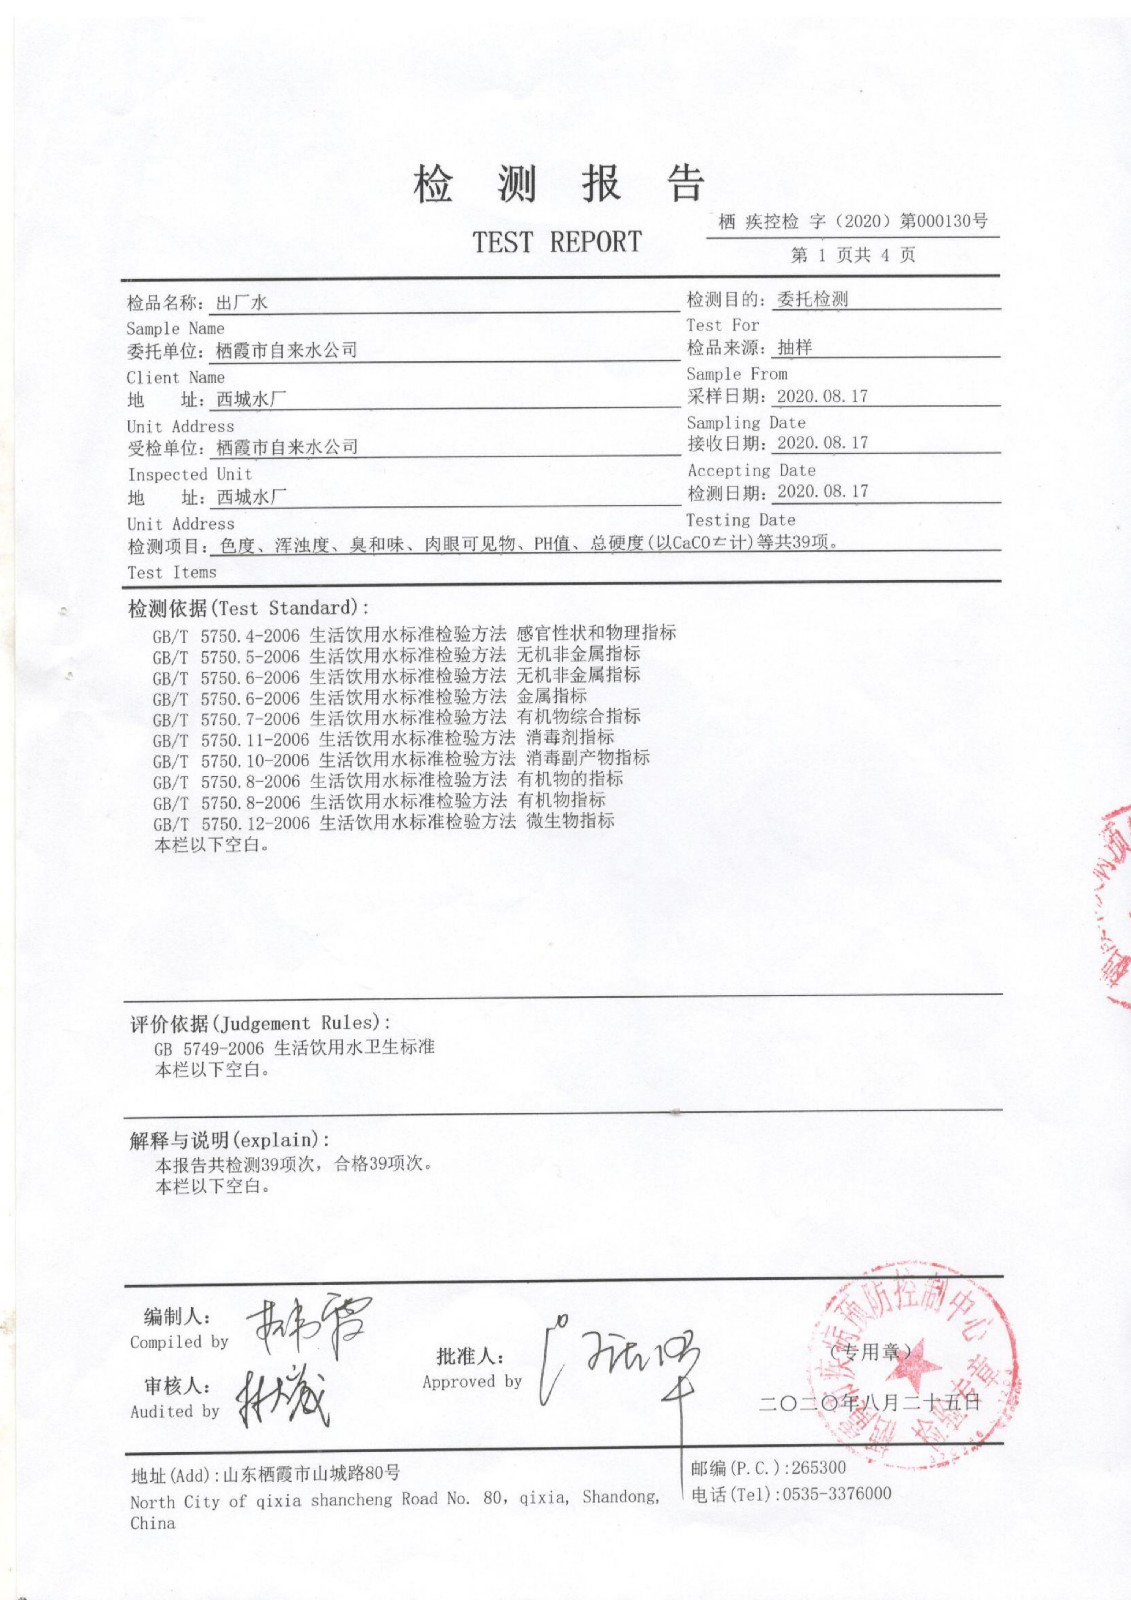 检 测 报 告
TEST REPORT
栖 疾控检 字（2020）第000130号
第 1 页共 4 页
检品名称: 出厂水
Sample Name
检测目的: 委托检测
Test For
委托单位: 栖霞市自来水公司
Client Name
检品来源: 抽样
Sample From
地 址: 西城水厂
Unit Address
采样日期: 2020.08.17
Sampling Date
受检单位: 栖霞市自来水公司
Inspected Unit
接收日期: 2020.08.17
Accepting Date
地 址: 西城水厂
Unit Address
检测日期: 2020.08.17
Testing Date
检测项目: 色度、浑浊度、臭和味、肉眼可见物、PH值、总硬度(以CaCO 计)等共39项。
Test Items
检测依据(Test Standard):
GB/T 5750.4-2006 生活饮用水标准检验方法 感官性状和物理指标
GB/T 5750.5-2006 生活饮用水标准检验方法 无机非金属指标
GB/T 5750.6-2006 生活饮用水标准检验方法 无机非金属指标
GB/T 5750.6-2006 生活饮用水标准检验方法 金属指标
GB/T 5750.7-2006 生活饮用水标准检验方法 有机物综合指标
GB/T 5750.11-2006 生活饮用水标准检验方法 消毒剂指标
GB/T 5750.10-2006 生活饮用水标准检验方法 消毒副产物指标
GB/T 5750.8-2006 生活饮用水标准检验方法 有机物的指标
GB/T 5750.8-2006 生活饮用水标准检验方法 有机物指标
GB/T 5750.12-2006 生活饮用水标准检验方法 微生物指标
本栏以下空白。
评价依据(Judgement Rules):
GB 5749-2006 生活饮用水卫生标准
本栏以下空白。
解释与说明(explain):
本报告共检测39项次，合格39项次。
本栏以下空白。
编制人:
Compiled by
审核人:
Audited by
批准人:
Approved by
（专用章）
二〇二〇年八月二十五日
栖霞市疾病预防控制中心
检验专用章
地址(Add):山东栖霞市山城路80号
North City of qixia shancheng Road No. 80, qixia, Shandong,
China
邮编(P.C.):265300
电话(Tel):0535-3376000